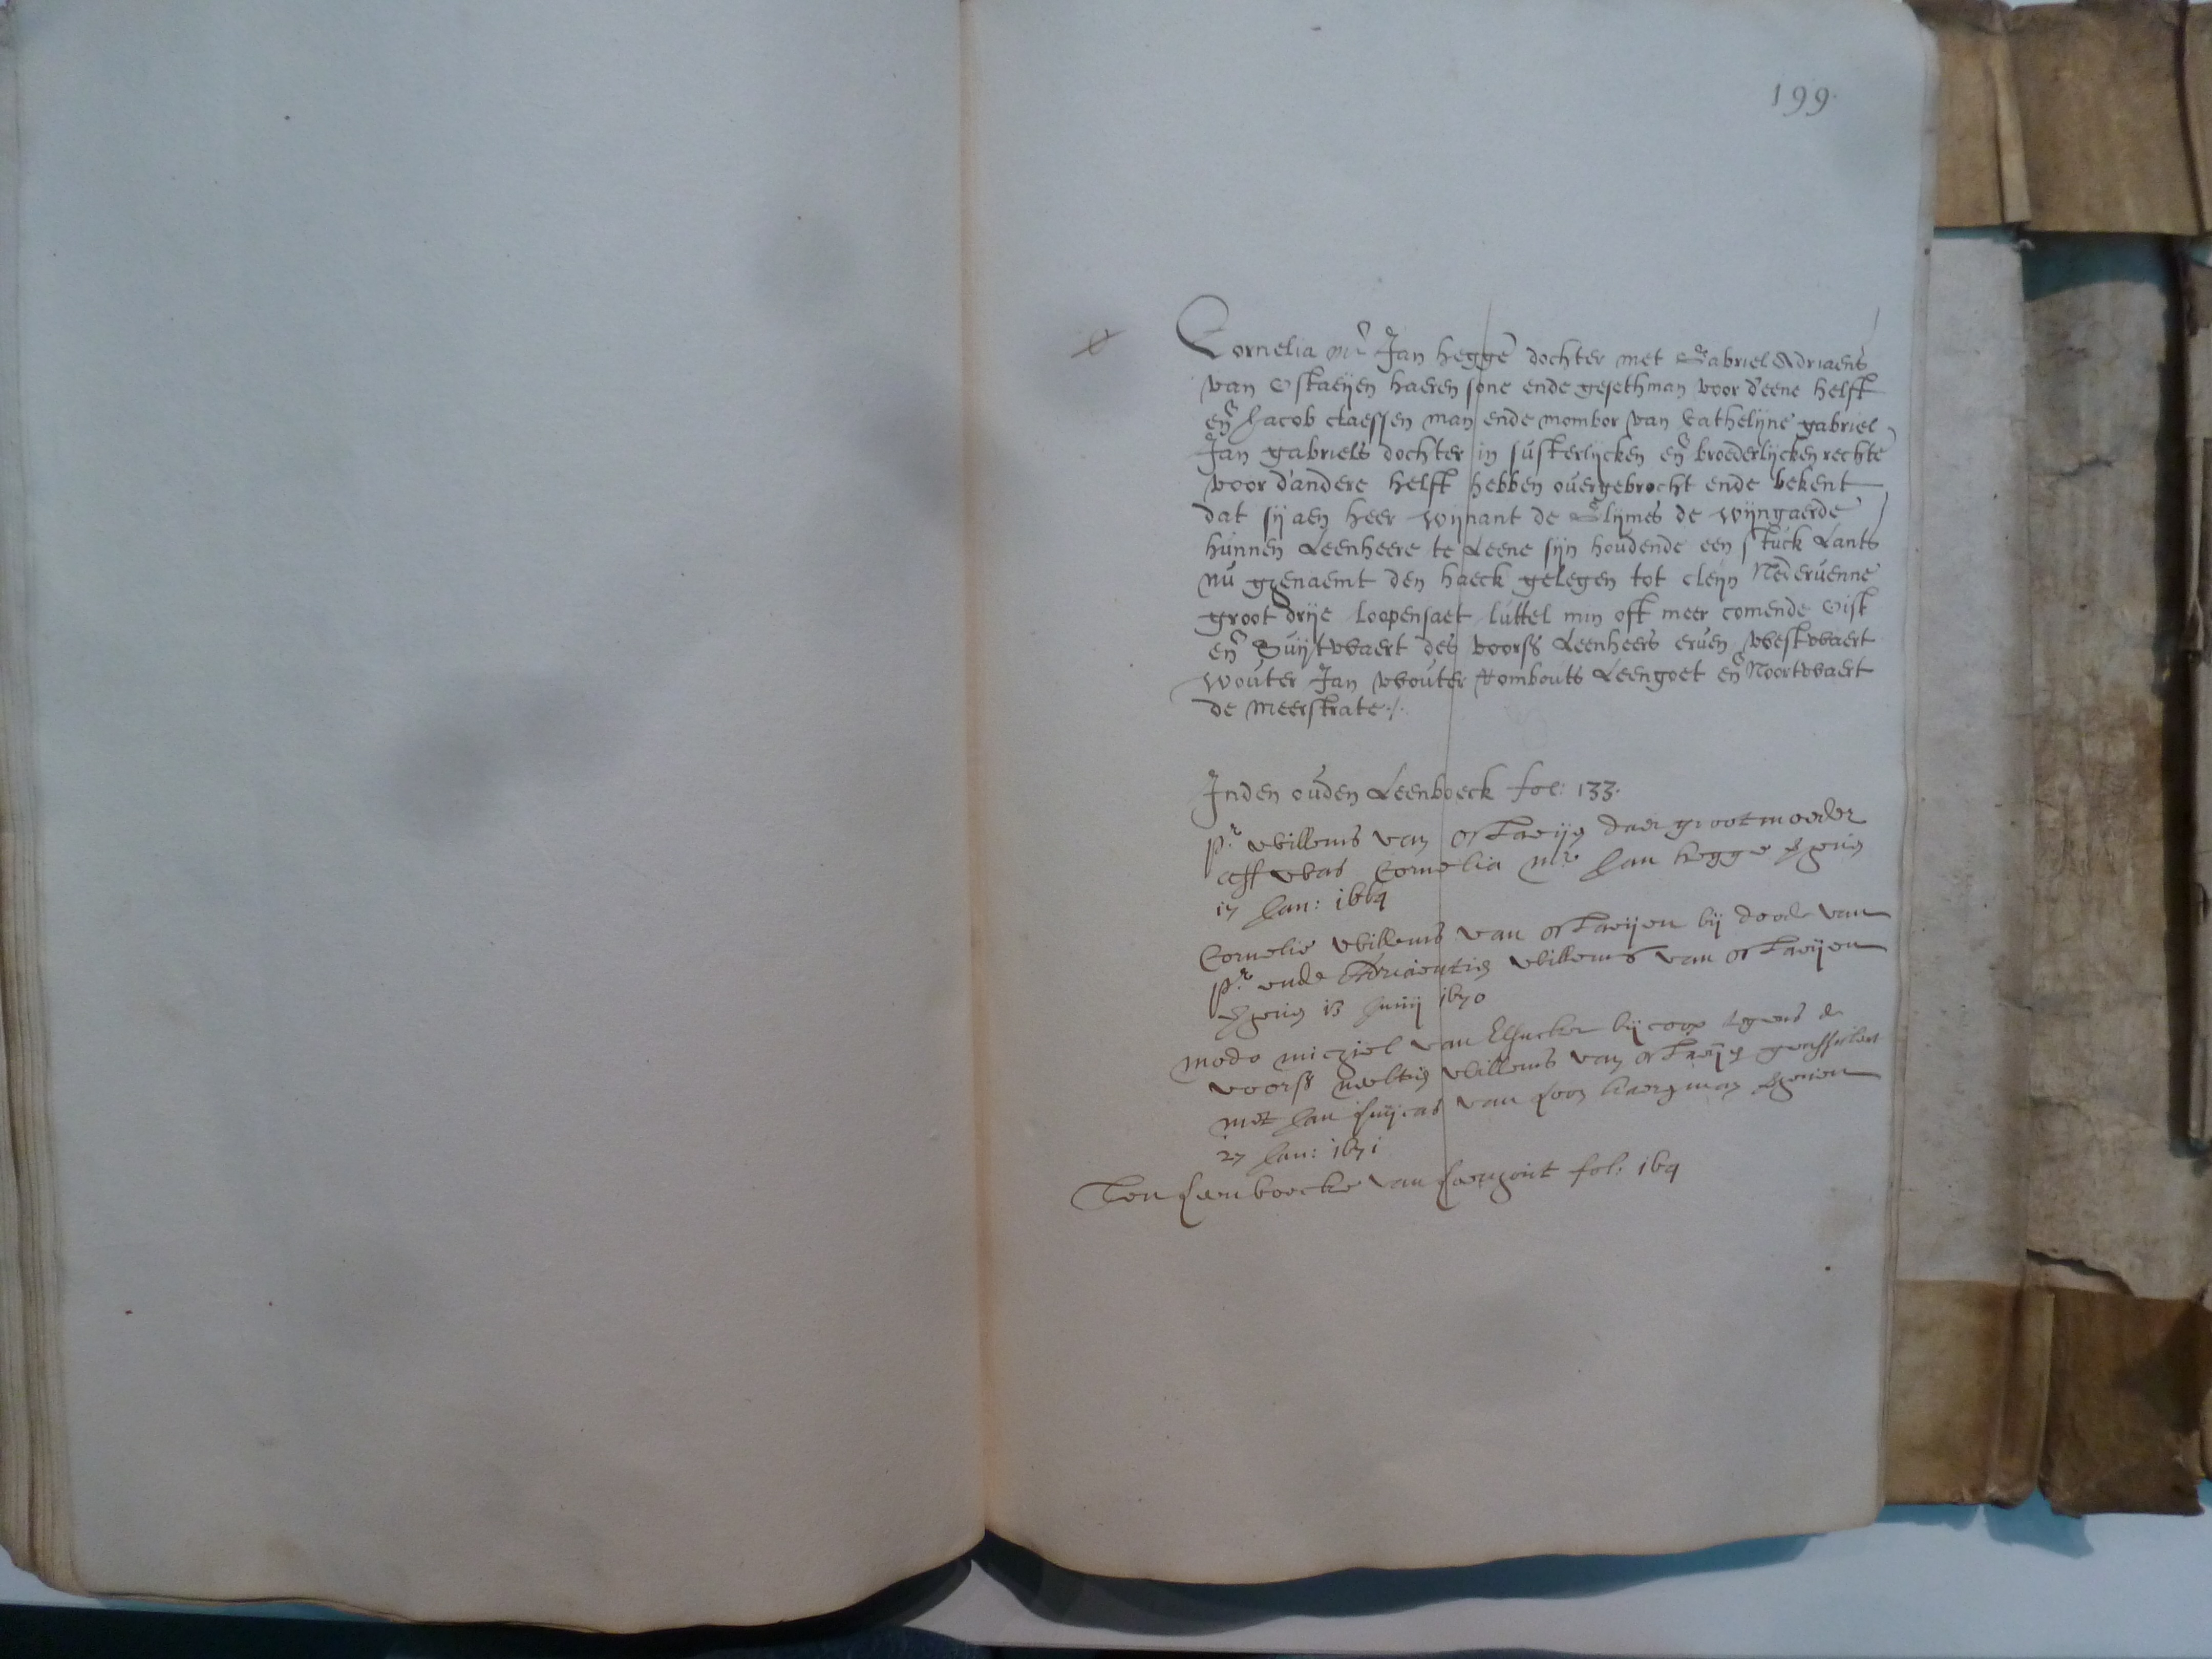 199.
Cornelia mr Jan hegge dochter met Gabriel Adriaens
van Ostaeijen haeren sone ende gesethman voor d'eene helft
en Jacob claessen man ende mombor van Cathelijne gabriel
Jan gabriels dochter in susterlijcken en broederlijcken rechte
voor d'andere helft hebben overgebrocht ende bekent
dat sij aen heer Wijnant de Glijmes de Wijngaerde
hunnen Leenheere te Leene sijn houdende een stuck Lants
nu genaemt den haeck gelegen tot cleijn Nederuenne
groot drije loopensaet luttel min oft meer comende Oist
en Suijtwaert des voorss Leenheers eruen westwaert
Wouter Jan Wouter Rombouts Leengoet en Noortwaert
de meerstrate ./.
Inden ouden Leenboeck fol: 133.
Pr Willems van Ostaeijen daer grootmoeder
aff was Cornelia mr Jan hegge
17 Jan: 1664
Cornelie Willems van Ostaeijen bij doode van
Pr ende Adriaentie Willems van Ostaeijen
13 Junij 1670
modo michiel van Elsacker bij coop tegens de
voorss neeltie Willems van Ostaeijen geassisteert
met Jan van Loon haeren man
27 Jan: 1671
Ten Leenboecke van fol: 164